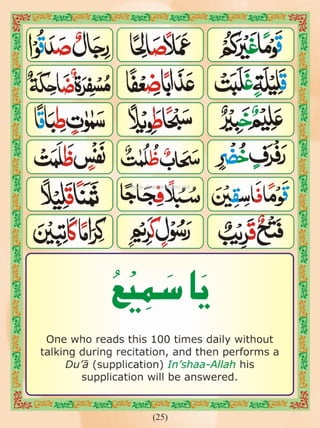 قَوْمًا غَيْرَكُمْ عَمَلًا صَالِحًا رِجَالٌ صَدَقُوْا
قَلِيْلَةٍ غَلَبَتْ عَذَابًا ضِعْفًا مُسْفِرَةٌ ضَاحِكَةٌ
عَلِيْمٌ خَبِيْرٌ سَبْحًا طَوِيْلًا سَمٰوٰتٍ طِبَاقًا
رَفْرَفٍ خُضْرٍ سَحَابٌ ظُلُمٰتٌ نَفْسٍ ظَلَمَتْ
قَوْمًا فَاسِقِيْنَ سُبُلًا فِجَاجًا ثَمَنًا قَلِيْلًا
فَتْحٌ قَرِيْبٌ رَسُوْلٍ كَرِيْمٍ كِرَامًا كَاتِبِيْنَ
يَا سَمِيْعُ
One who reads this 100 times daily without
talking during recitation, and then performs a
Du’ā (supplication) In’shaa-Allah his
supplication will be answered.
(25)